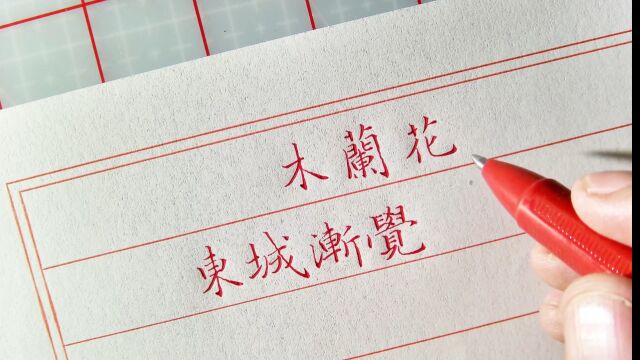 木蘭花
東城漸覺